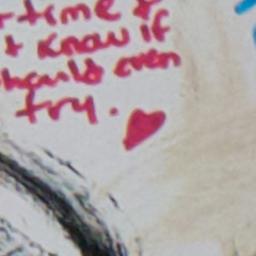 time &
t know if
should even
try.